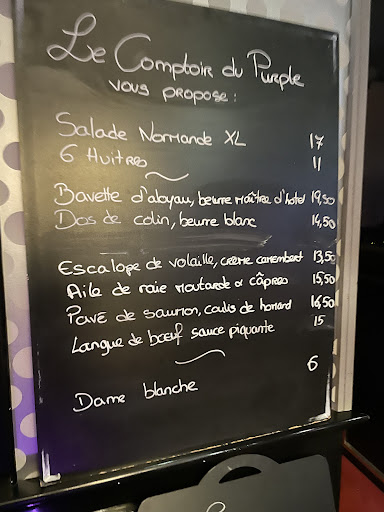 Le Comptoir du Purple
vous propose :
Salade Normande XL 17
6 Huitres 11
Bavette d'aloyau, beurre maître d'hotel 19,50
Dos de colin, beurre blanc 14,50
Escalope de volaille, crème camembert 13,50
Aile de raie moutarde et câpres 15,50
Pavé de saumon, coulis de homard 16,50
Langue de bœuf sauce piquante 15
Dame blanche 6